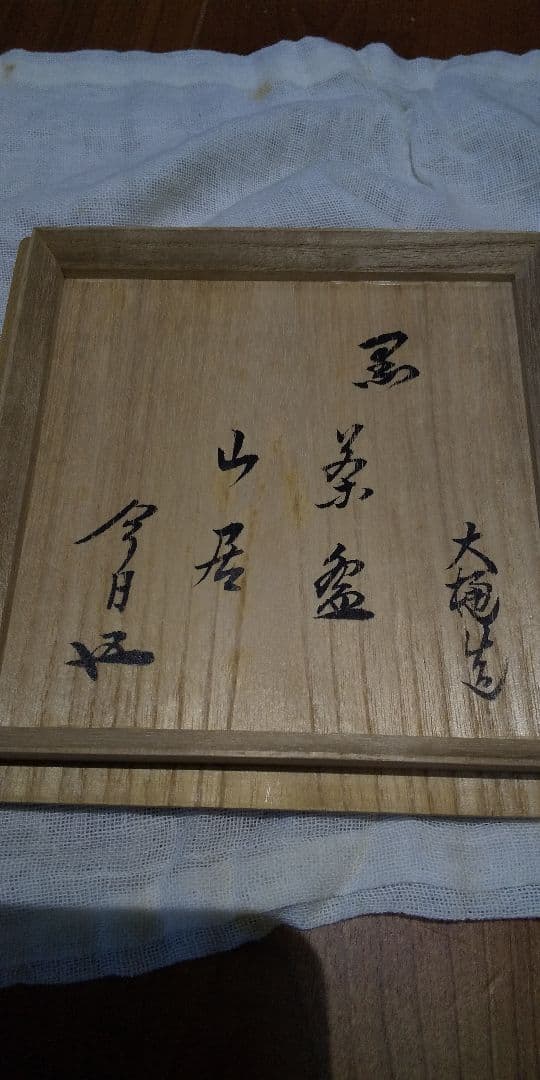 大樋造
黒茶盌
山居
今日